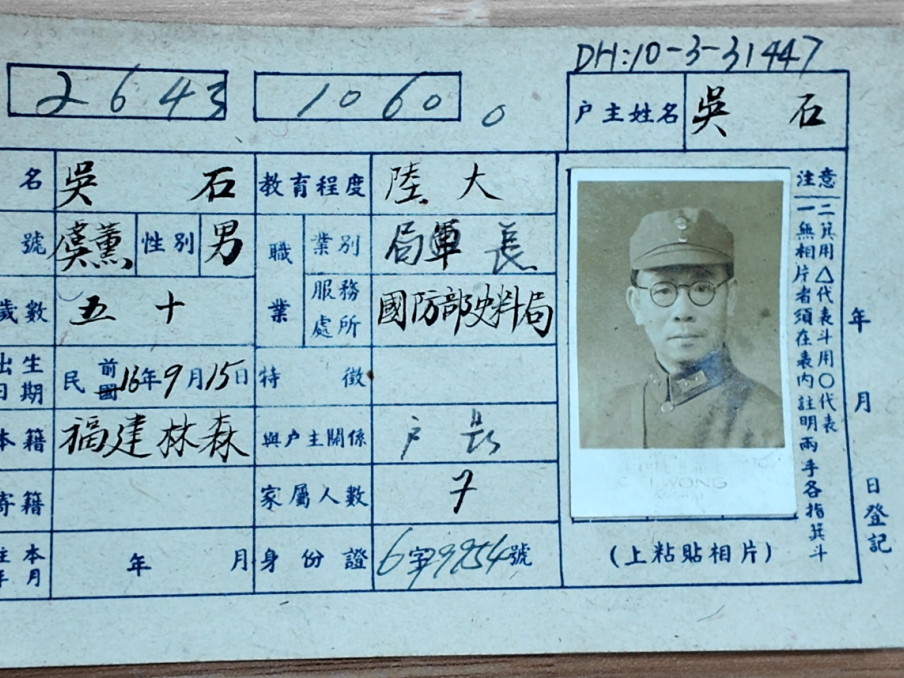 DH:10-3-31447
2643 1060 0
戶主姓名 吳石
名 吳石 教育程度 陸大
號 虞薰 性別 男 職業 業別 局軍長
歲數 五十 服務處所 國防部史料局
出生日期 民前國16年9月15日 特徵
本籍 福建林森 與戶主關係 戶長
寄籍 家屬人數 7
住本年月 年 月 身份證 6字9954號
注意
一無相片者須在表內註明兩手各指箕斗
二箕用△代表斗用○代表
年 月 日登記
WONG
(上粘貼相片)